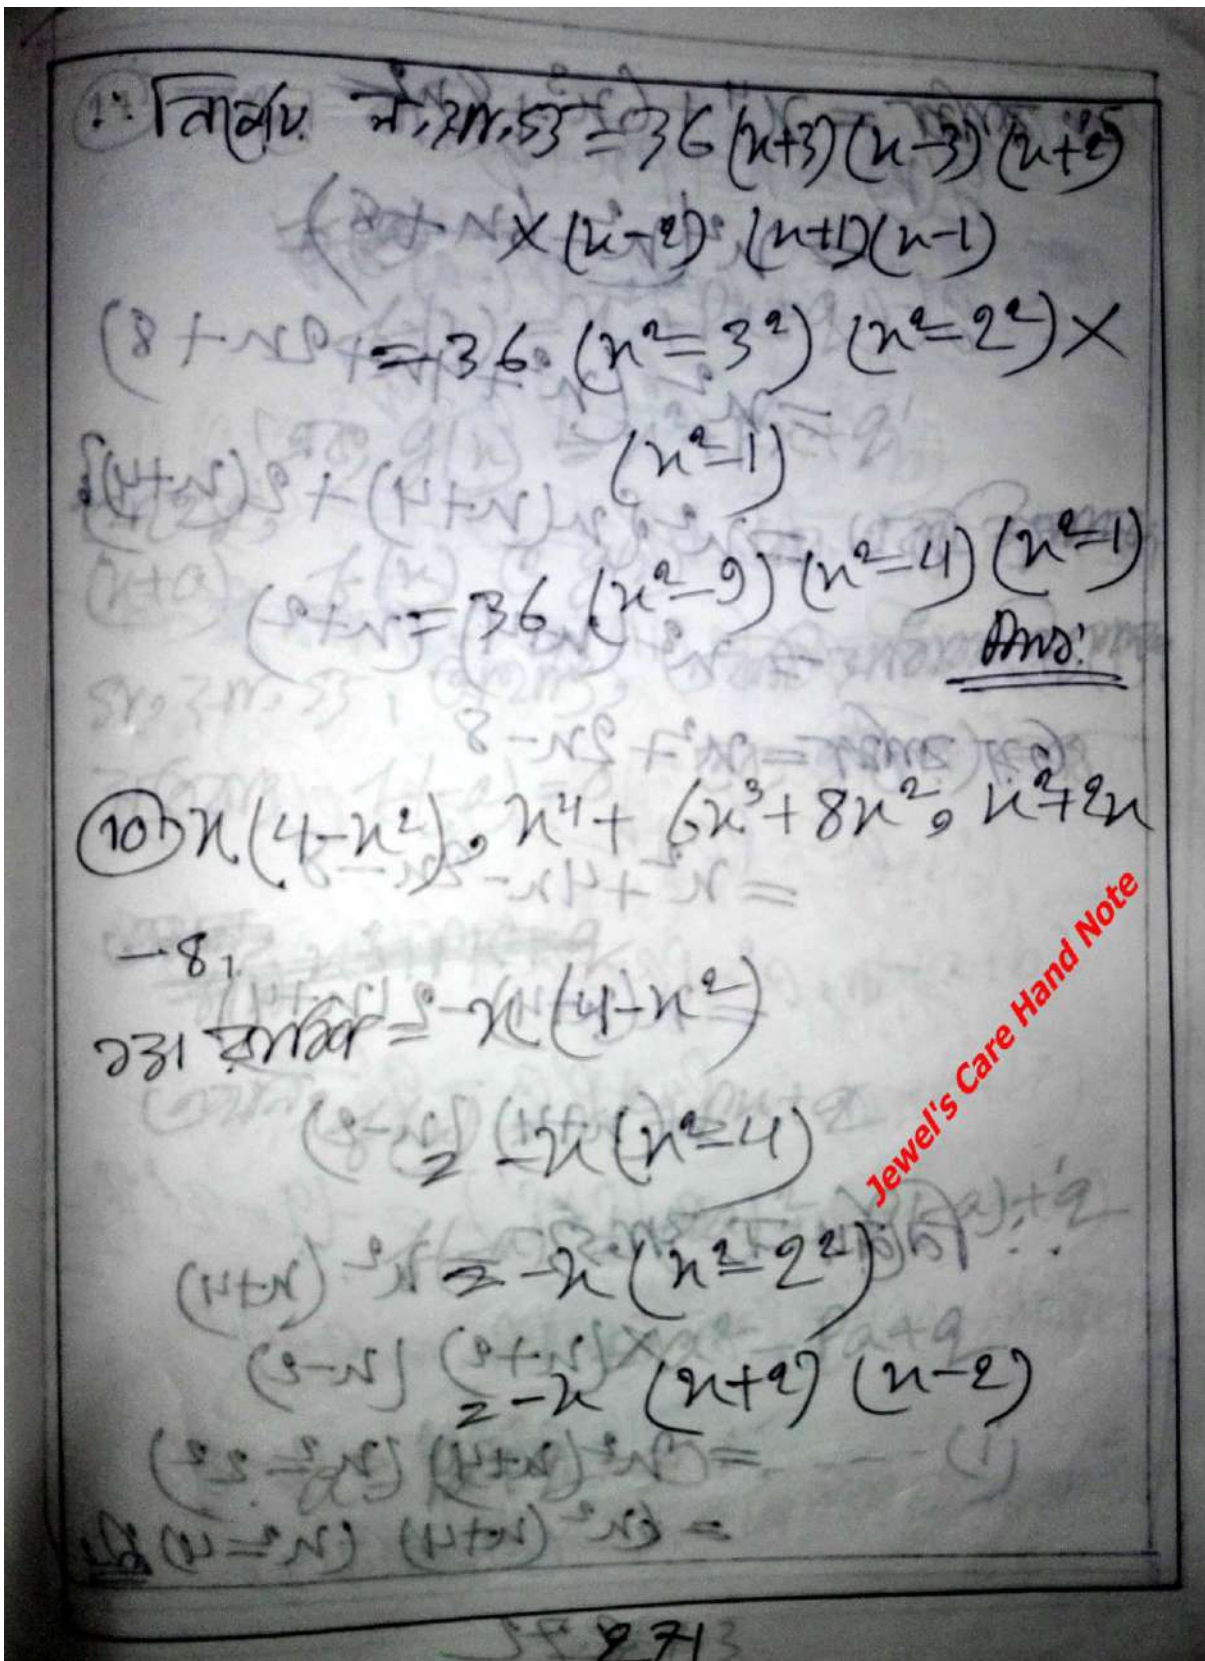 ∴ নির্ণেয় ল.সা.গু = 36 (x+3) (x-3) (x+2)
× (x-2) (x+1)(x-1)
= 36 (x²-3²) (x²-2²) ×
(x²-1)
= 36 (x²-9) (x²-4) (x²-1)
Ans:
10) x(4-x²), x⁴+ 6x³+8x², x²+2x
-8,
১ম রাশি = x(4-x²)
= -x(x²-4)
= -x(x²-2²)
= -x (x+2) (x-2)
Jewel's Care Hand Note